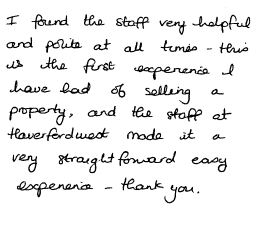 I found the staff very helpful
and polite at all times - this
is the first experience I
have had of selling a
property, and the staff at
Haverfordwest made it a
very straightforward easy
experience - thank you.